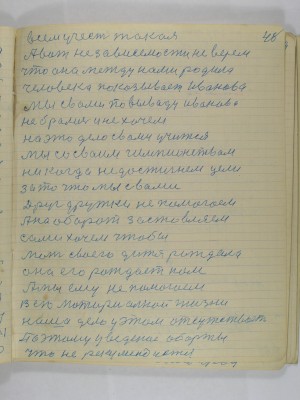 всем учест такая
48
А вот независемости не верем
что она между нами родила
человека показывает Иванова
мы свами по выводу Иванова
не брались и не хочем
на это дело свами учится
мы со своим чемпионством
никогда недостигнем цели
за то что мы свами
друг дружки не помогаем
А на оборот заставляем
сами хочем чтобы
мать своего дитя рождала
она его рождает нам
А мы ему не помогаем
В его материалной жизни
наша дело у этом отсутствает
Поэтому уведеные аборты
что не рекомендуется